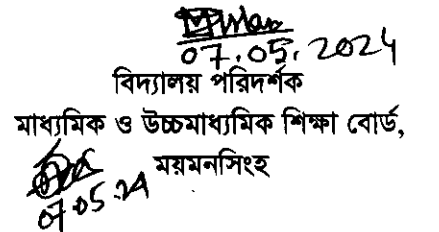 07.05.2024
বিদ্যালয় পরিদর্শক
মাধ্যমিক ও উচ্চমাধ্যমিক শিক্ষা বোর্ড,
ময়মনসিংহ
07.05.24